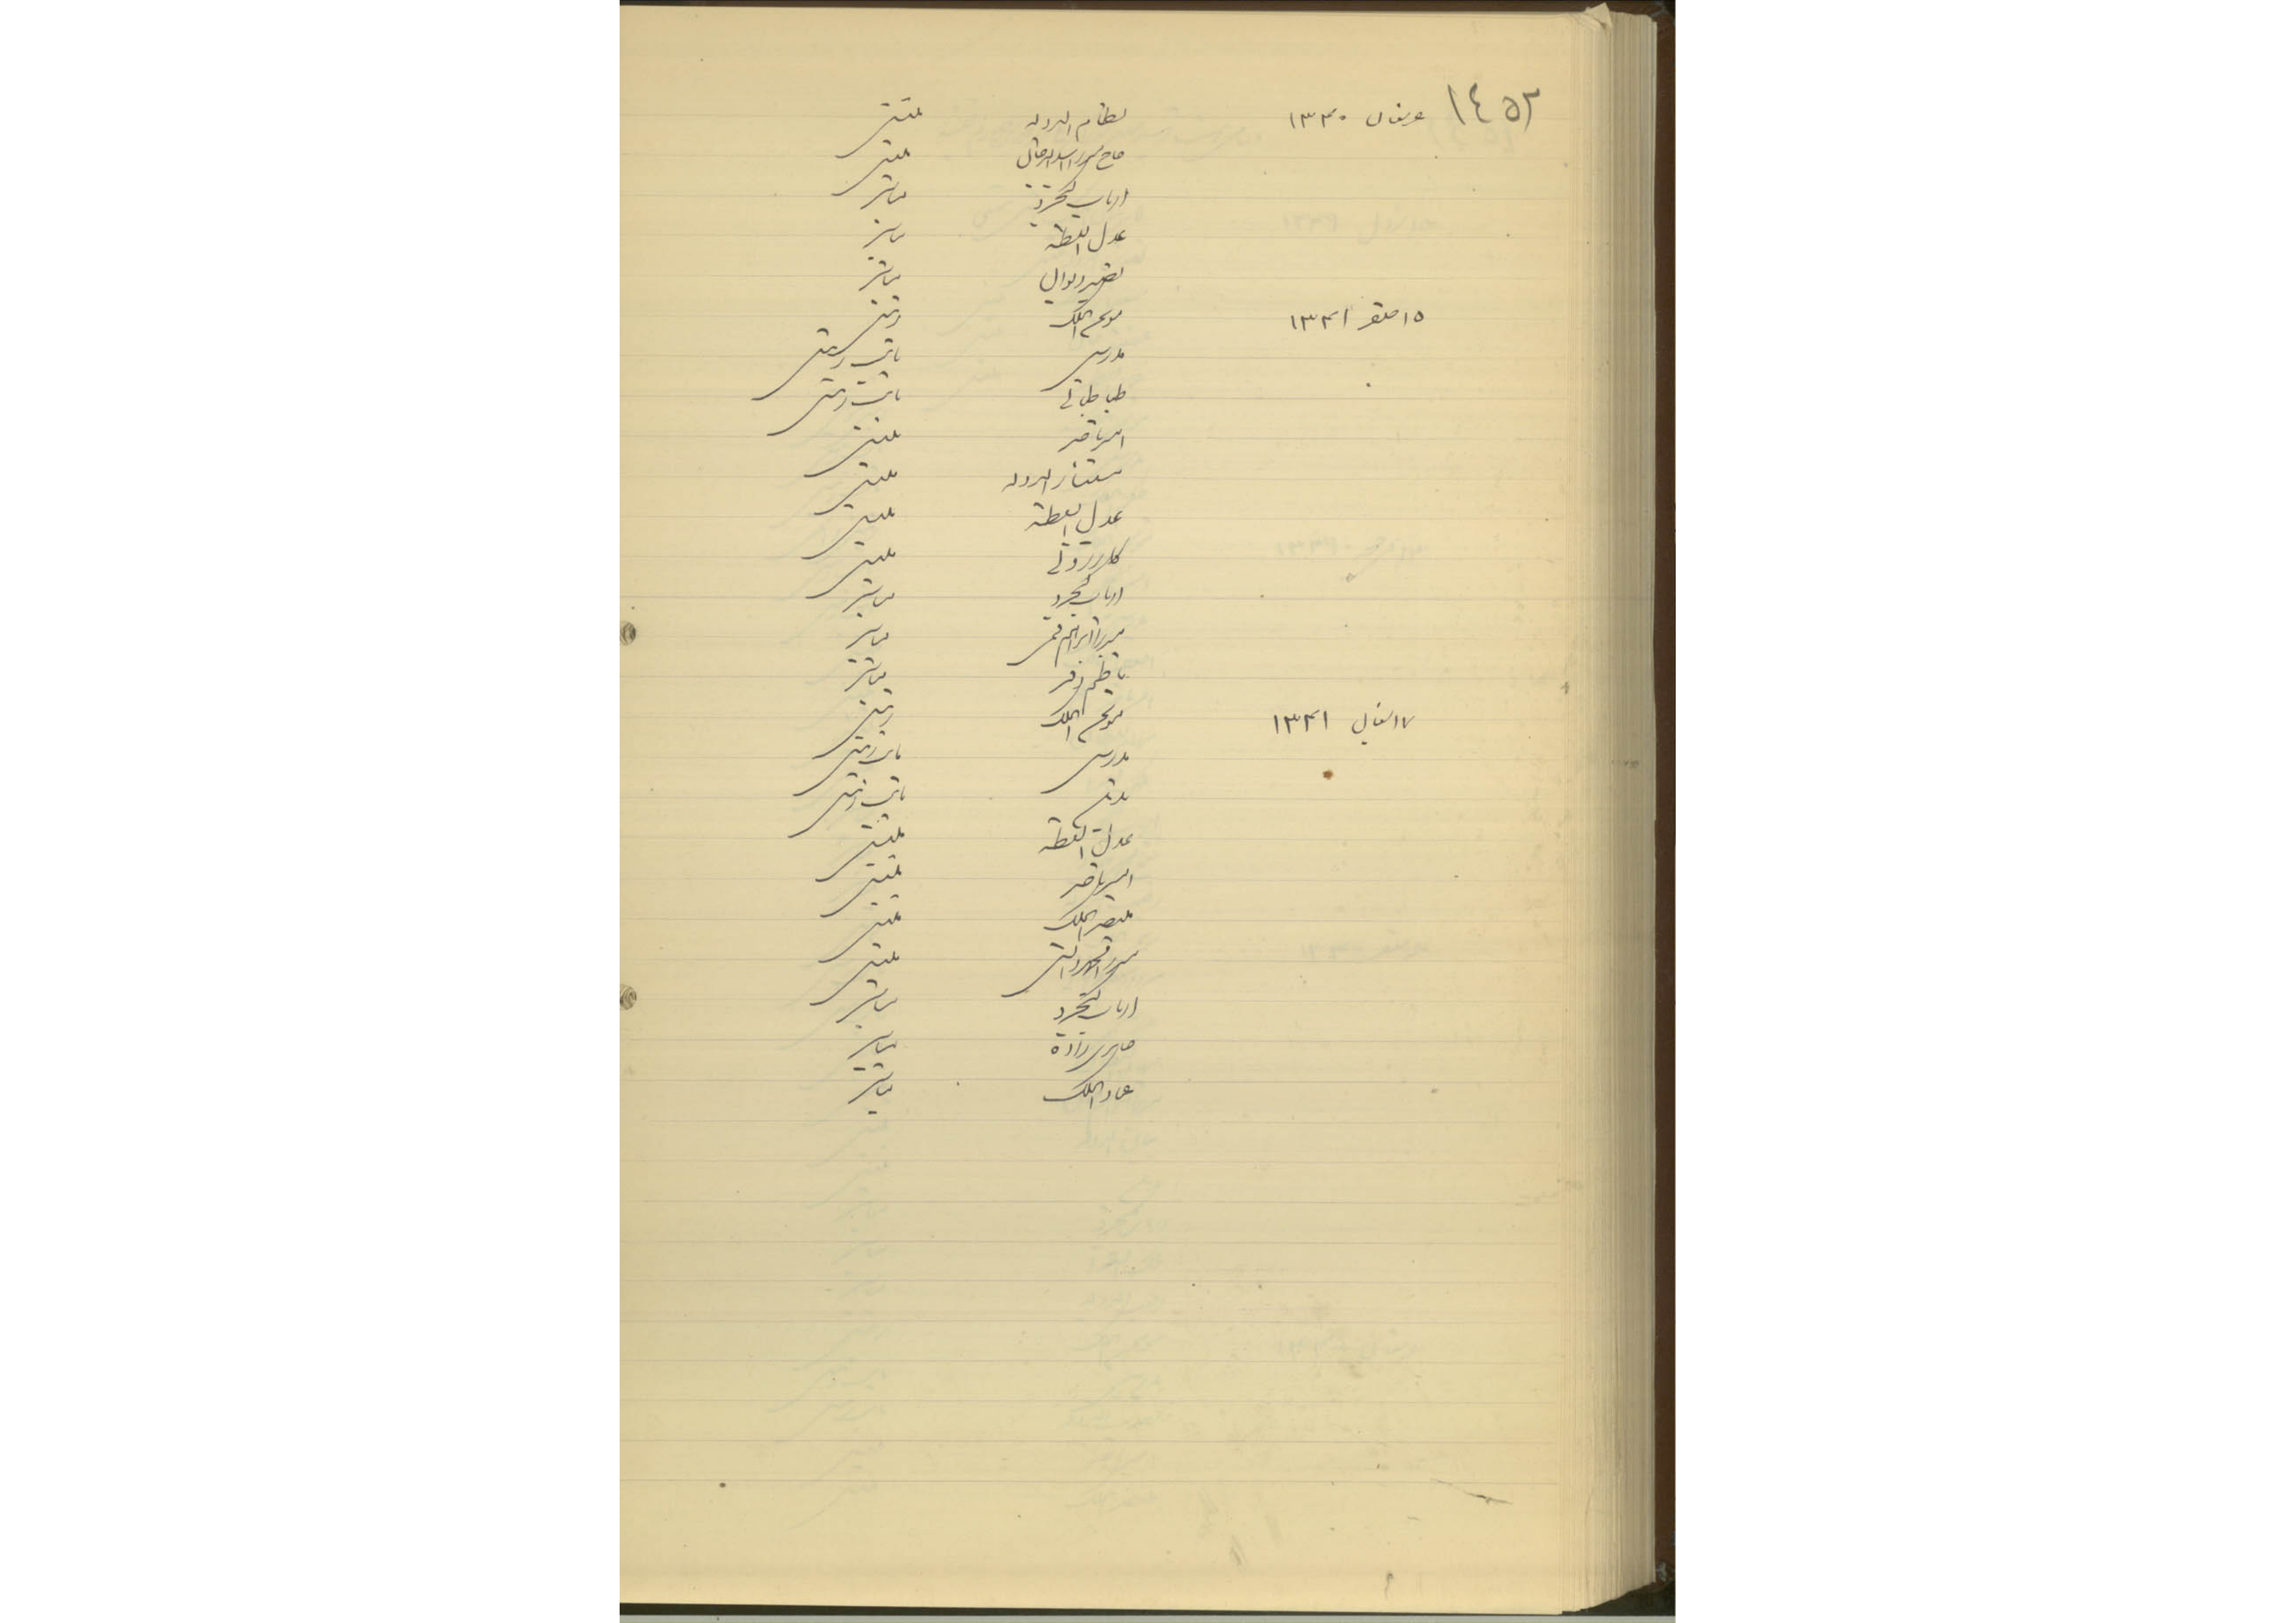 ١٤٥٢
۱۳۴۰ نظام الدوله منشی
حاج میرزا اسدالله خان منشی
ارباب کیخسرو مباشر
عدل السلطنه مباشر
نصیر دیوان مباشر
۱۵ صفر ۱۳۴۱ موتمن الملک رئیس
مدرس نایب رئیس
طباطبائی نایب رئیس
امیر ناصر منشی
مستشار الدوله منشی
عدل السلطنه منشی
منشی
ارباب کیخسرو مباشر
میرزا ابراهیم قمی مباشر
مباشر
۱۳۴۱ موتمن الملک رئیس
مدرس نایب رئیس
تدین نایب رئیس
عدل السلطنه منشی
امیر ناصر منشی
منتصر الملک منشی
منشی
ارباب کیخسرو مباشر
حائری زاده مباشر
عماد الملک مباشر